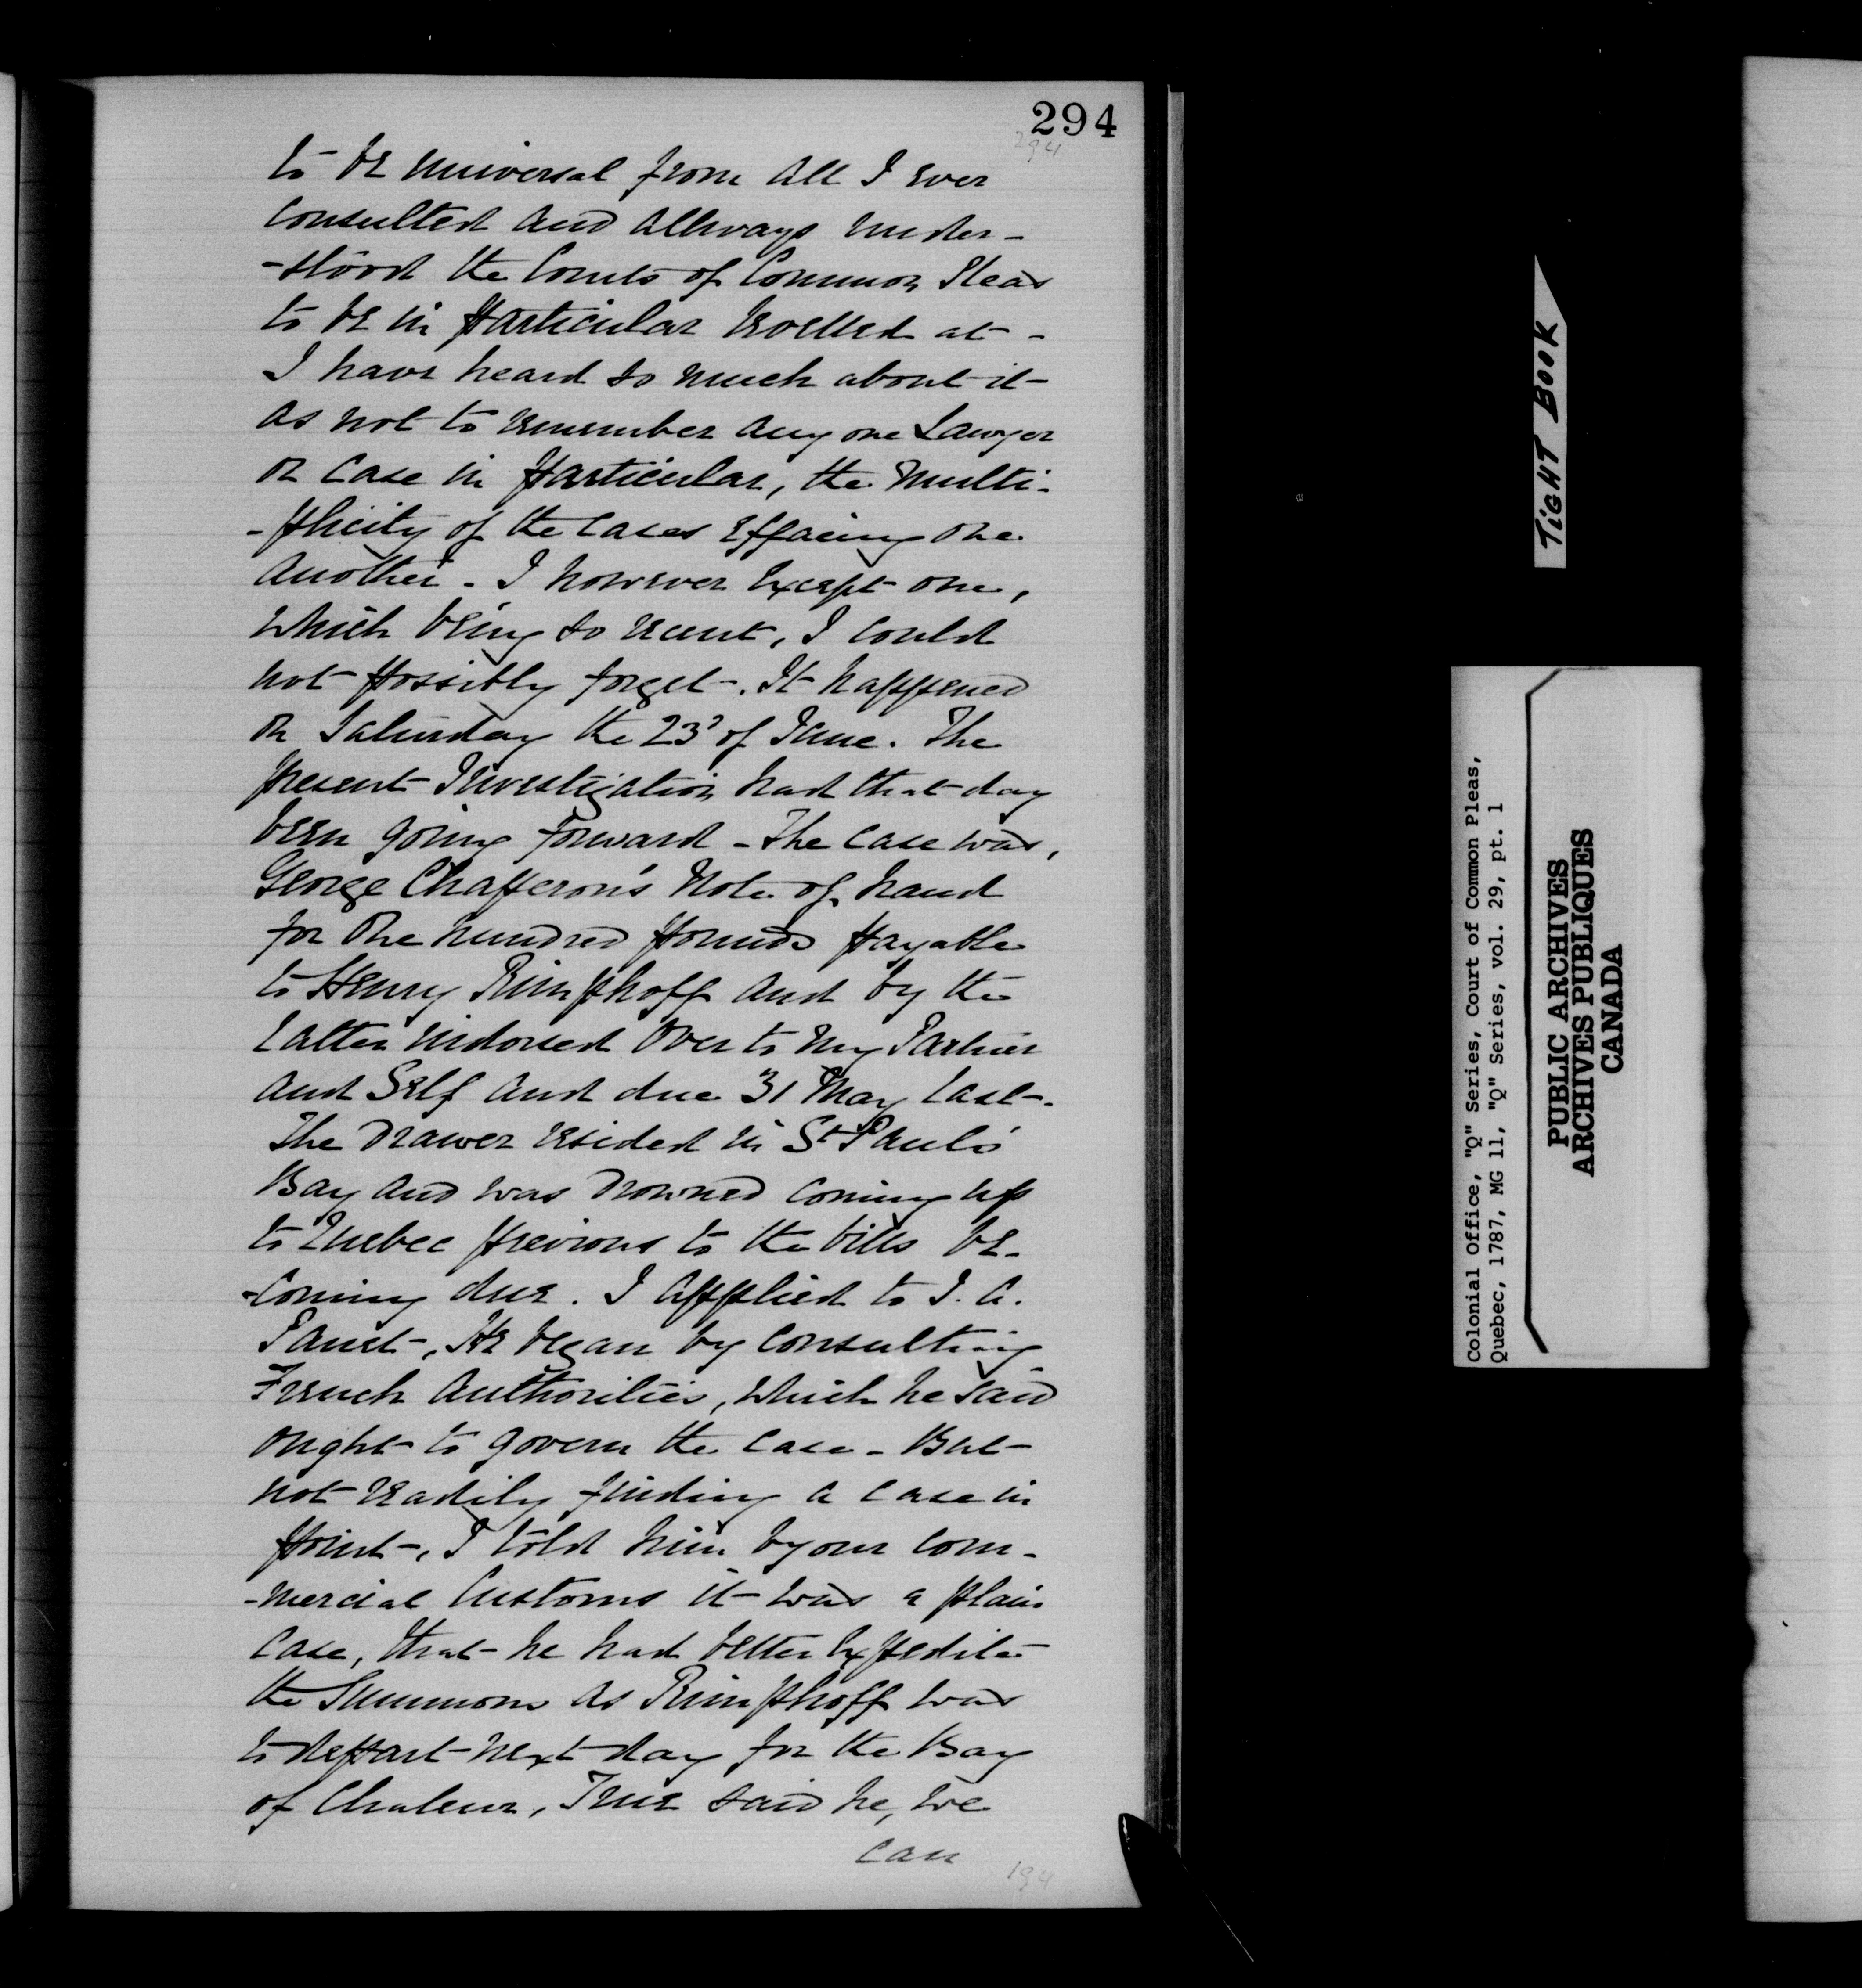 294
294
to be universal from all I ever
consulted and allways under-
-stood the Courts of Common Pleas
to be in particular levelled at -
I have heard so much about it
as not to remember any one Lawyer
or Case in particular, the Multi-
-plicity of the Cases effacing one
Another - I however except one,
which being so recent, I could
not possibly forget. It happened
on Saturday the 23d of June. The
present Investigation had that day
been going forward - the Case was,
George Chapperon's Note of hand
for One hundred pounds payable
to Henry Rimphoff and by the
latter indorsed over to my Partner
and Self and due 31 May last.
The Drawer resided in St Paul's
Bay and was drowned coming up
to Quebec previous to the bills be-
-coming due. I applied to I. A.
Panet, He began by consulting
French Authorities, which he said
ought to govern the Case - But
not readily finding a case in
point, I told him by our com-
-mercial Customs it was a plain
Case, that he had better expedite
the Summons as Rimphoff was
to depart next day for the Bay
of Chaleur, True said he, we
can
194
TIGHT BOOK
Colonial Office, "Q" Series, Court of Common Pleas,
Quebec, 1787, MG 11, "Q" Series, vol. 29, pt. 1
PUBLIC ARCHIVES
ARCHIVES PUBLIQUES
CANADA